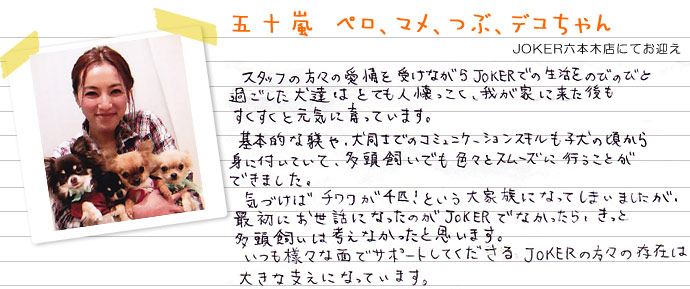 五十嵐 ペロ、マメ、つぶ、デコちゃん
JOKER六本木店にてお迎え
スタッフの方々の愛情を受けながらJOKERでの生活をのびのびと
過ごした犬達はとても人懐っこく、我が家に来た後も
すくすくと元気に育っています。
基本的な躾や、犬同士でのコミュニケーションスキルも子犬の頃から
身に付いていて、多頭飼いでも色々とスムーズに行うことが
できました。
気づけばチワワが4匹!という大家族になってしまいましたが、
最初にお世話になったのがJOKERでなかったら、きっと
多頭飼いは考えなかったと思います。
いつも様々な面でサポートしてくださるJOKERの方々の存在は
大きな支えになっています。